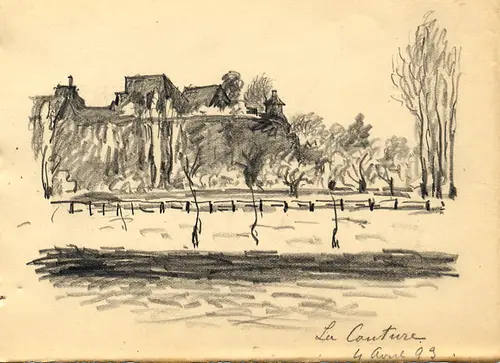 La Couture
4 Avril 93